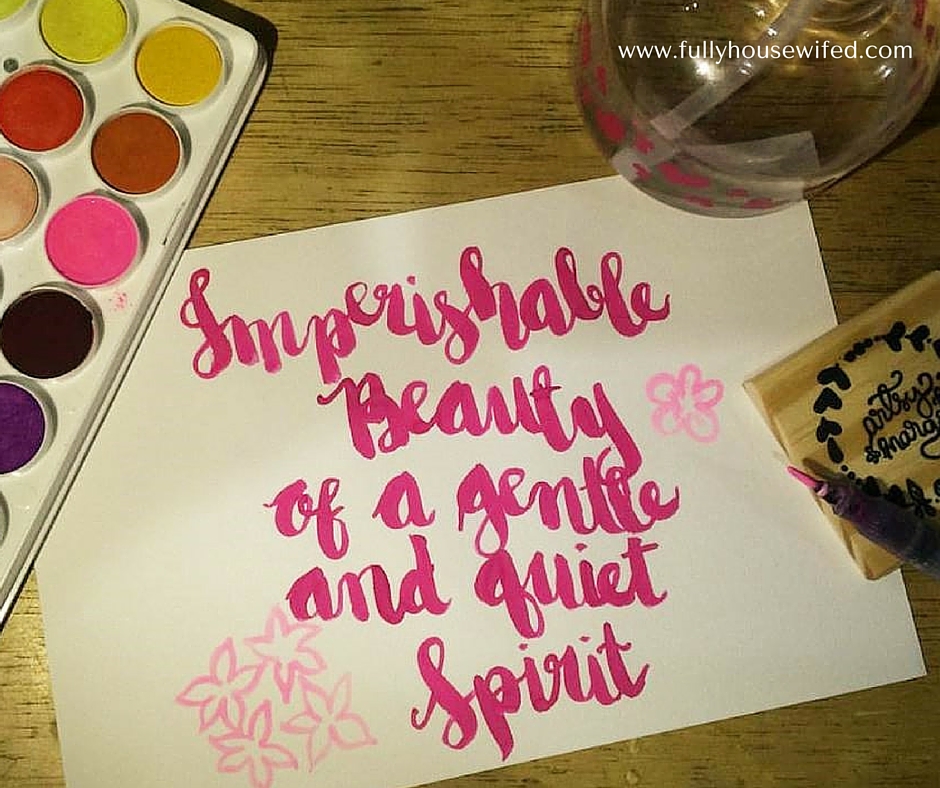 www.fullyhousewifed.com
Imperishable
Beauty
of a gentle
and quiet
Spirit
artsy